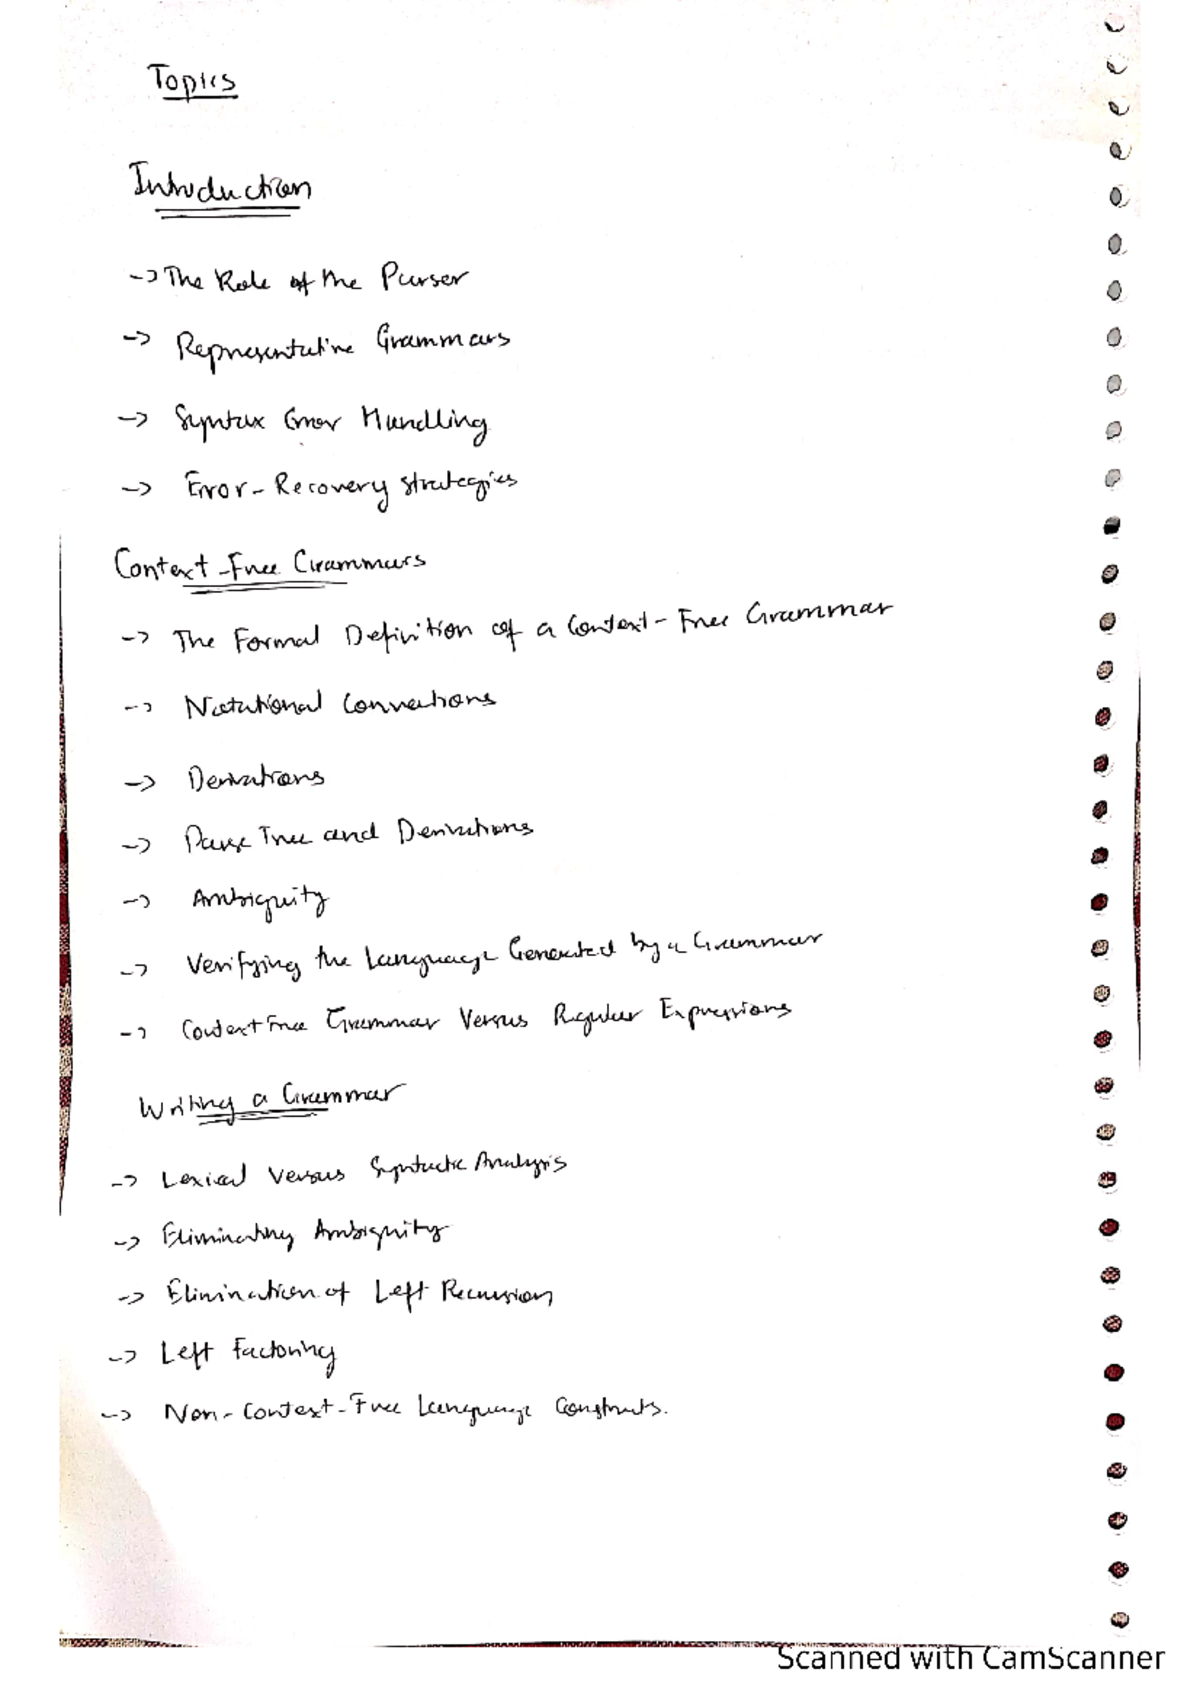 Topics
Introduction
-> The Role of the Parser
-> Representative Grammars
-> Syntax Error Handling
-> Error-Recovery strategies
Context-Free Grammars
-> The Formal Definition of a Context-Free Grammar
-> Notational Conventions
-> Derivations
-> Parse Tree and Derivations
-> Ambiguity
-> Verifying the Language Generated by a Grammar
-> Context Free Grammar Versus Regular Expressions
Writing a Grammar
-> Lexical Versus Syntactic Analysis
-> Eliminating Ambiguity
-> Elimination of Left Recursion
-> Left Factoring
-> Non-Context-Free Language Constructs.
Scanned with CamScanner